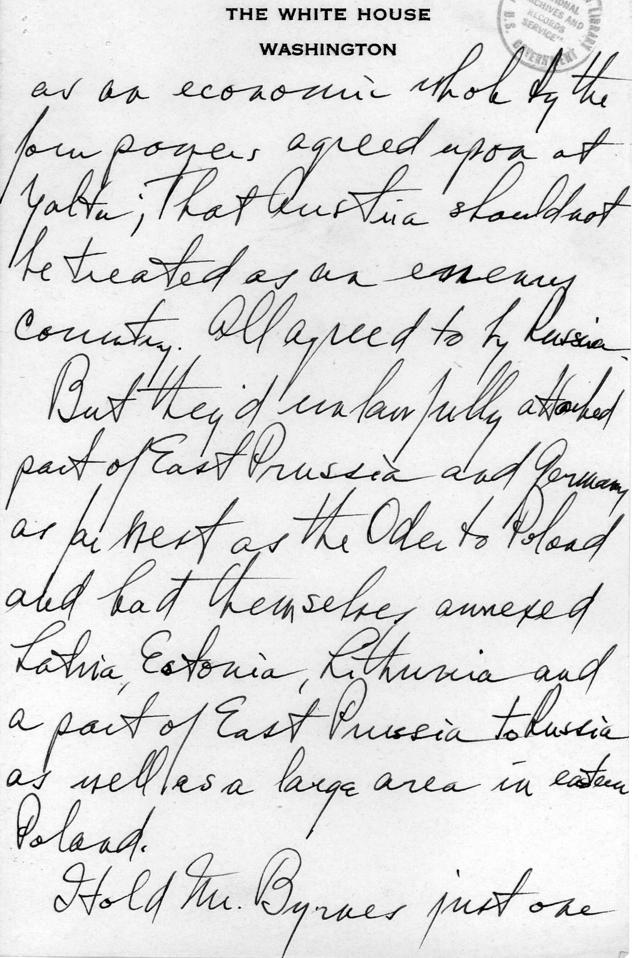 THE WHITE HOUSE
WASHINGTON
ARCHIVES AND
RECORDS
SERVICE
U.S. GOVERNMENT
LIBRARY
as an economic whole by the
four powers agreed upon at
Yalta; That Austria should not
be treated as an enemy
country. All agreed to by Russia.
But they'd unlawfully attached
part of East Prussia and Germany
as far west as the Oder to Poland
and had themselves annexed
Latvia, Estonia, Lithuania and
a part of East Prussia to Russia
as well as a large area in eastern
Poland.
I told Mr. Byrnes just one